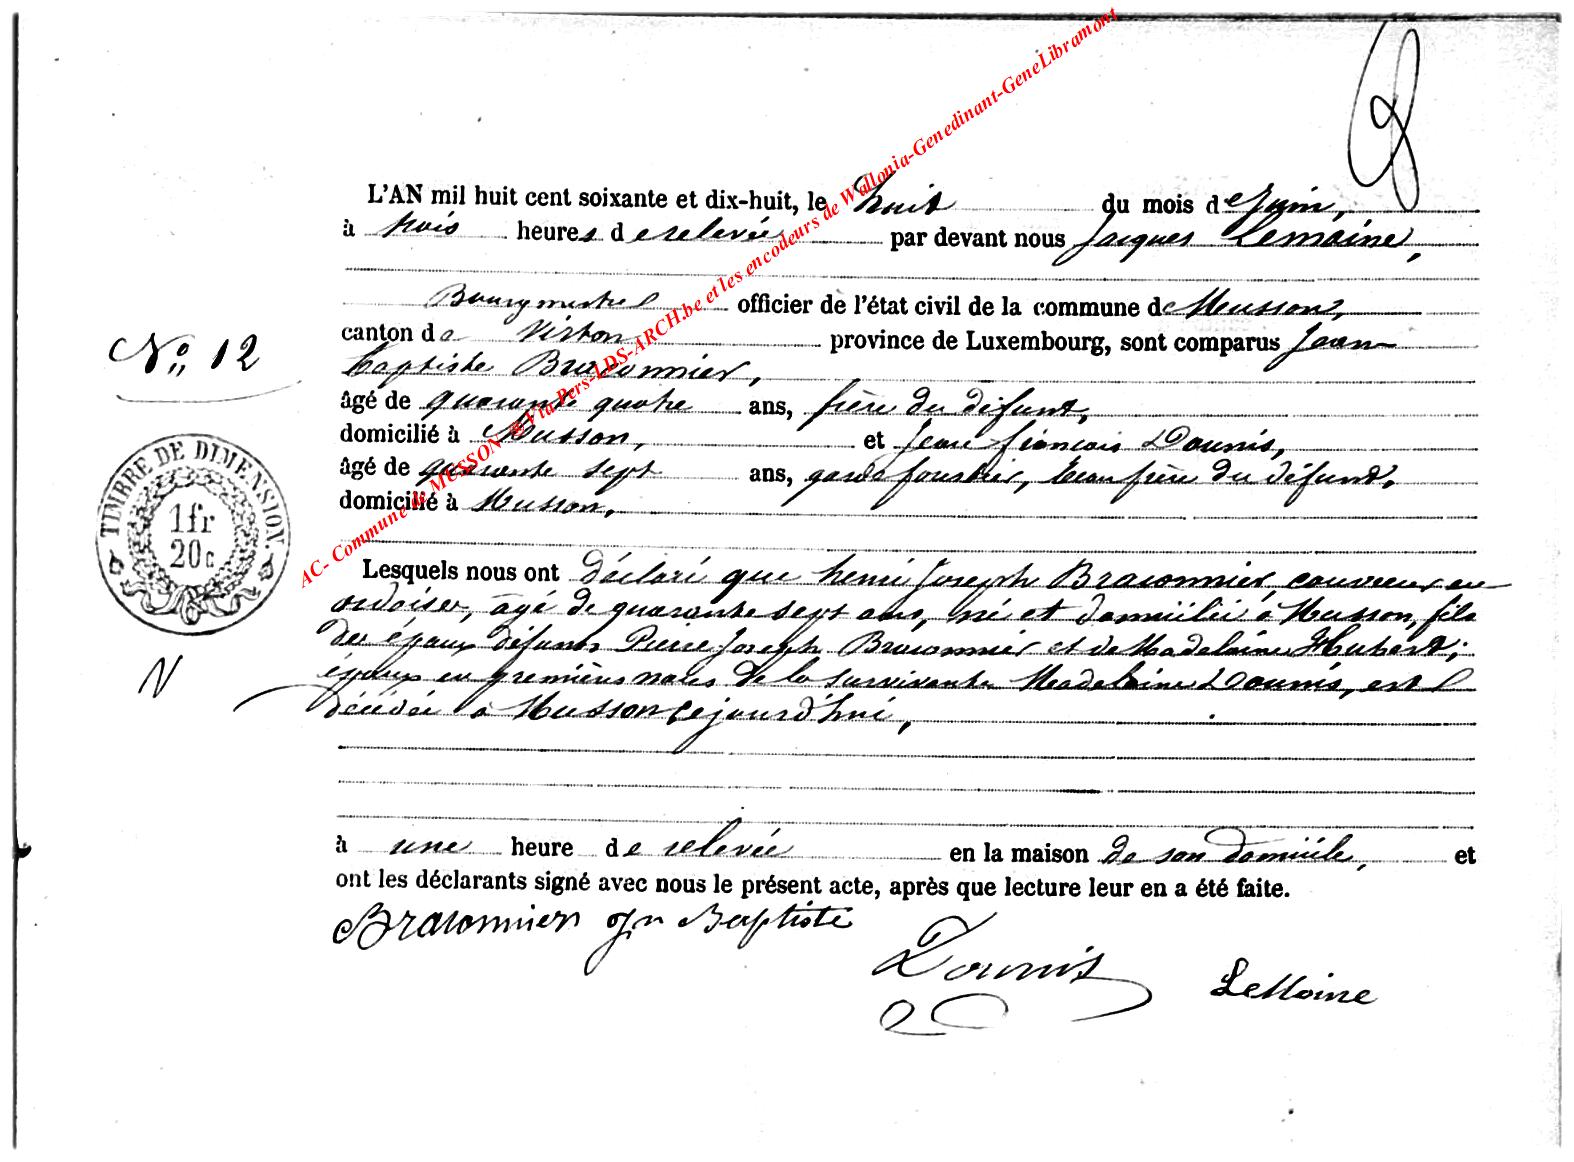 8
L'AN mil huit cent soixante et dix-huit, le huit du mois de Juin,
à trois heures de relevée par devant nous Jacques Lemoine,
Bourgmestre officier de l'état civil de la commune de Musson,
canton de Virton province de Luxembourg, sont comparus Jean
Baptiste Braconnier,
âgé de quarante quatre ans, frère du défunt,
domicilié à Musson, et Jean françois Dounis,
âgé de quarante sept ans, garde forestier, beau frère du défunt,
domicilié à Musson,
Lesquels nous ont déclaré que henri Joseph Braconnier couvreur en
ardoises, âgé de quarante sept ans, né et domicilié à Musson, fils
des époux défunts Pierre Joseph Braconnier et de Madelaine Hubert;
époux en premières noces de la survivante Madelaine Dounis, est
décédé à Musson cejourd'hui,
à une heure de relevée en la maison de son domicile, et
ont les déclarants signé avec nous le présent acte, après que lecture leur en a été faite.
Braconnier jn Baptiste
Dounis
LeMoine
No 12
TIMBRE DE DIMENSION
1fr
20c
N
AC- Commune de MUSSON @ Via Pers-LDS-ARCH.be et les encodeurs de Wallonia-Genedinant-GeneLibramont